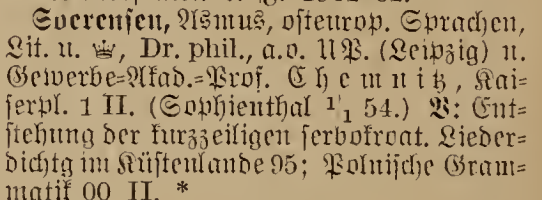 Soerensen, Asmus, osteurop. Sprachen,
Lit. u. ♕, Dr. phil., a.o. UP. (Leipzig) u.
Gewerbe=Akad.=Prof. Chemnitz, Kai=
serpl. 1 II. (Sophienthal 1/1 54.) V: Ent=
stehung der kurzzeiligen serbokroat. Lieder=
dichtg im Küstenlande 95; Polnische Gram=
matik 00 II. *